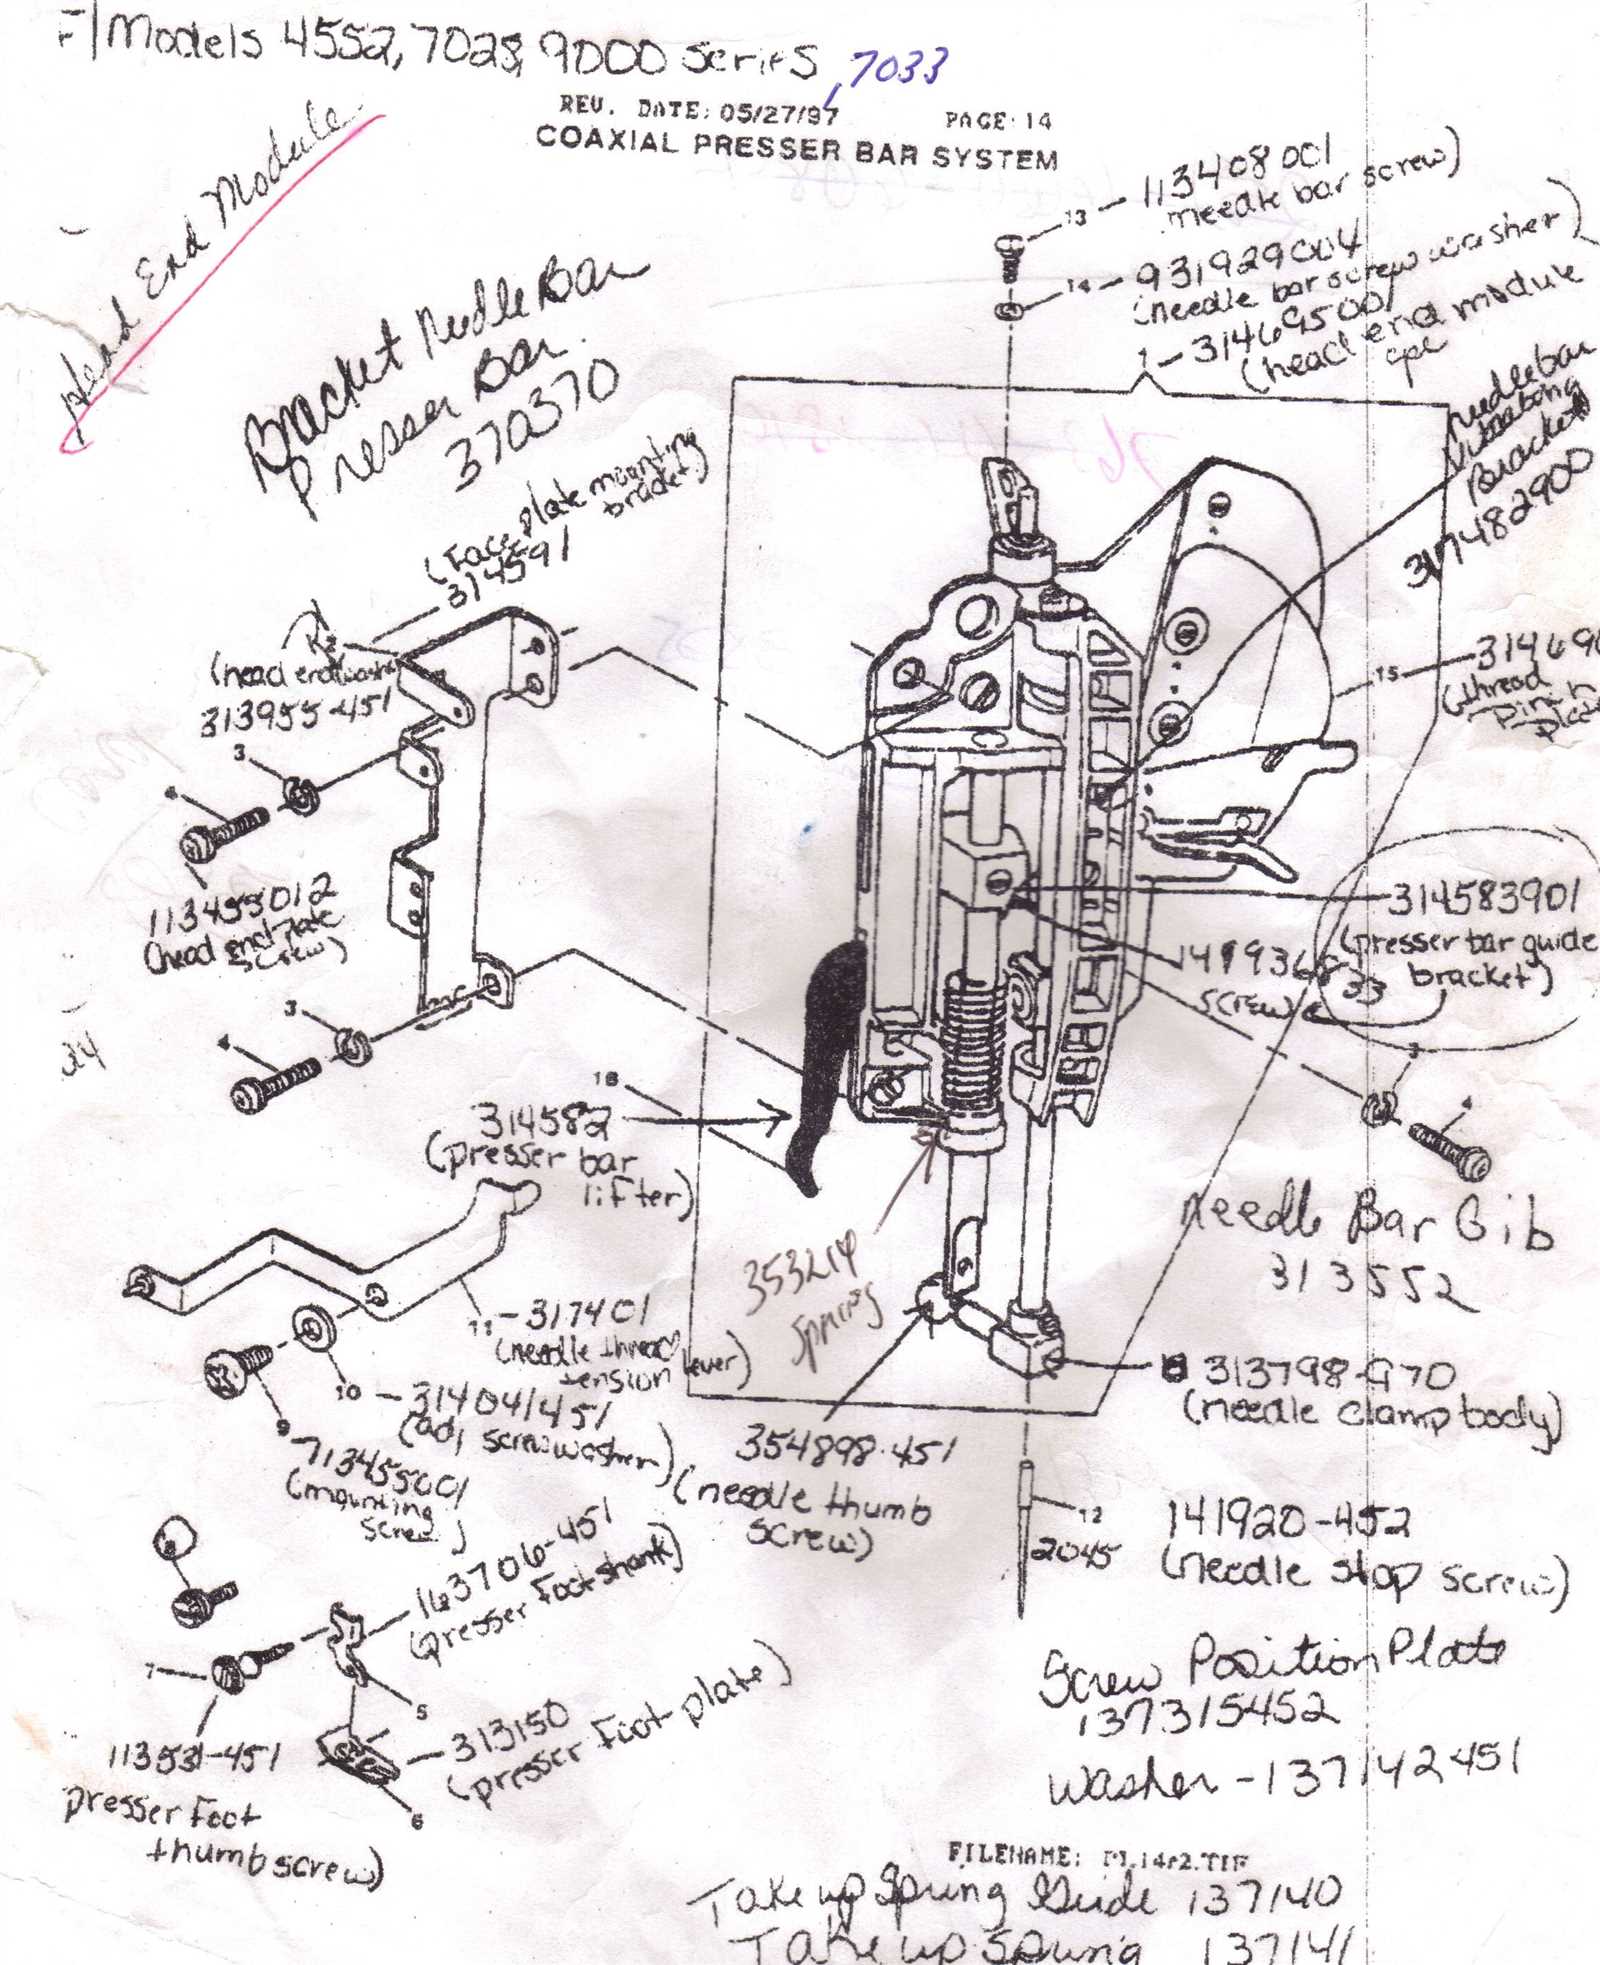 F/Models 4552, 7028, 9000 series, 7033
REV. DATE: 05/27/97 PAGE 14
COAXIAL PRESSER BAR SYSTEM
Head End Module
Bracket Needle Bar
Presser Bar.
370370
13 - 113408001
needle bar screw)
14 - 931929004
(needle bar screw washer)
1 - 314695001
(head end module
cpl
needle bar
Bracket
3174482900
(Face plate mounting
bracket)
314591
(head end washer
313955-451
3
4
113455012
(head end plate
screw)
3
4
15
(thread
Pinch
314583901
(presser bar guide
bracket)
screw)
33
3
4
18
314582
(presser bar
lifter)
353214
spring
Needle Bar Gib
313552
11 - 317401
(needle thread
tension lever)
10 - 314041451
(adj screw washer)
9
713455001
(mounting
screw)
354898-451
(needle thumb
screw)
313798-G70
(needle clamp body)
12
2045
141920-452
(needle stop screw)
163706-451
(presser foot shank)
7
5
113531-451
presser foot
thumb screw)
313150
(presser foot plate)
6
Screw Position Plate
137315452
washer - 137142451
FILENAME: P1.14r2.TIF
Take up Spring Guide 137140
Take up Spring 137141
24